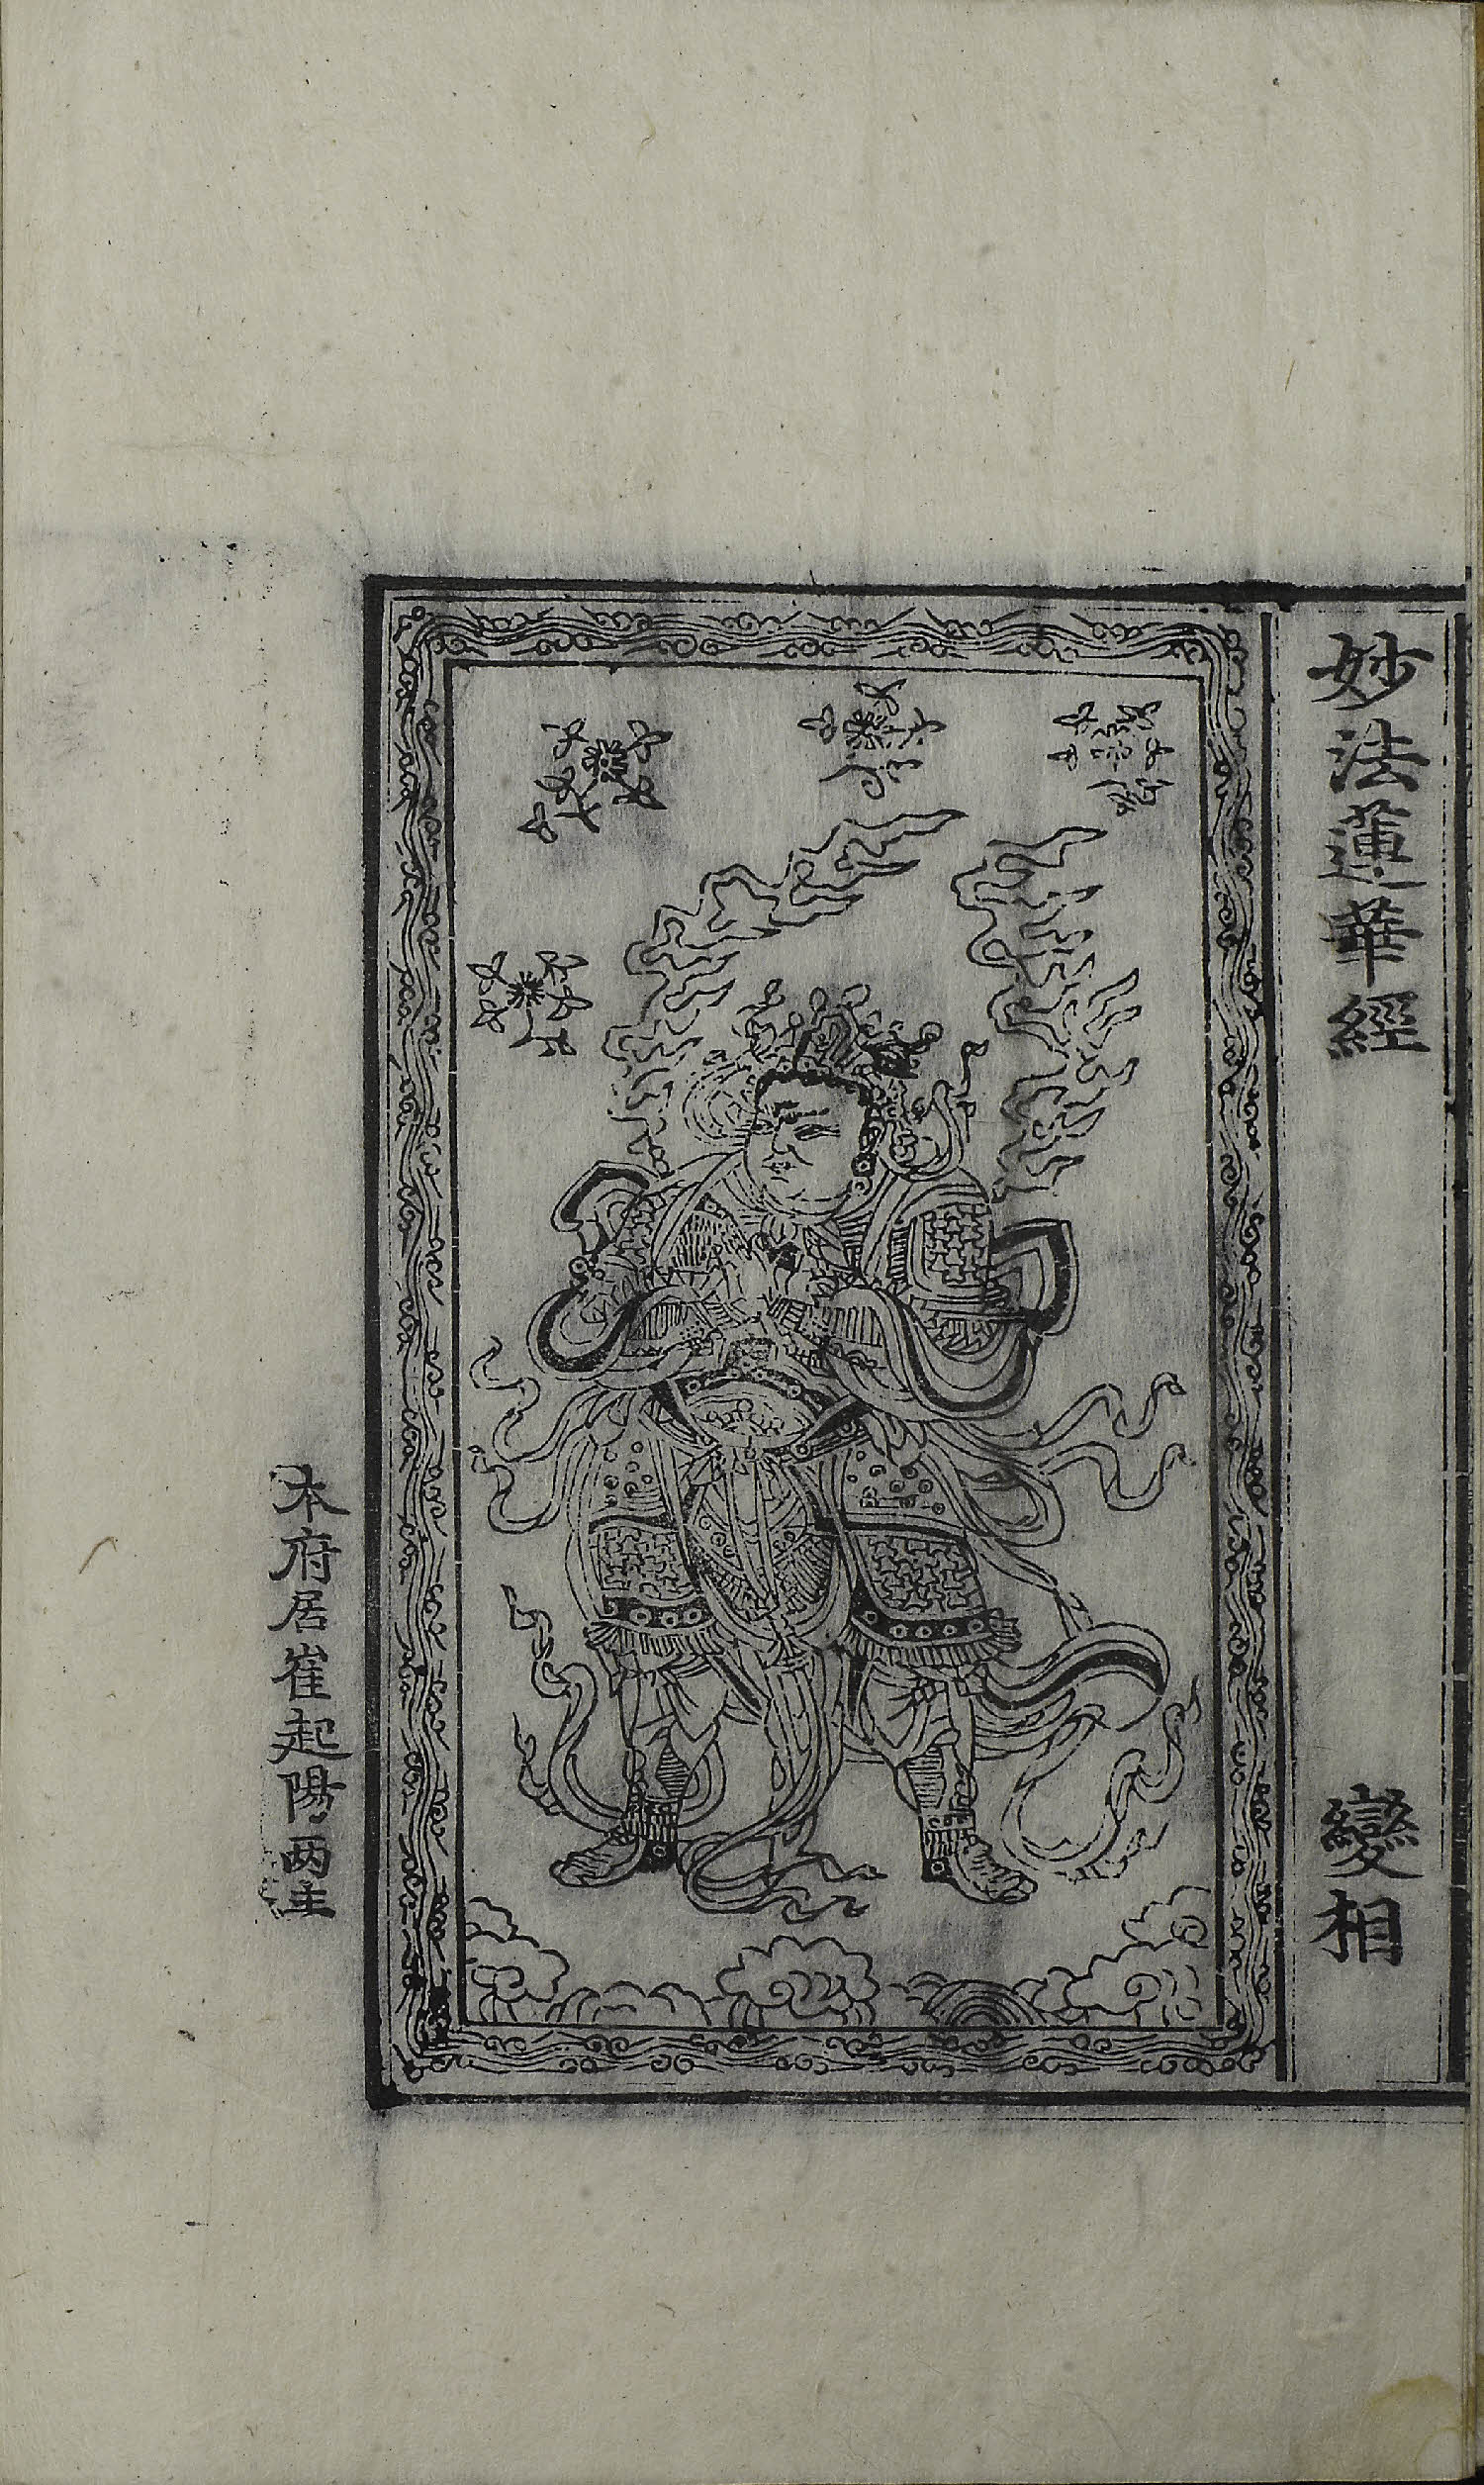 妙法蓮華經
變相
本府居崔起陽两主